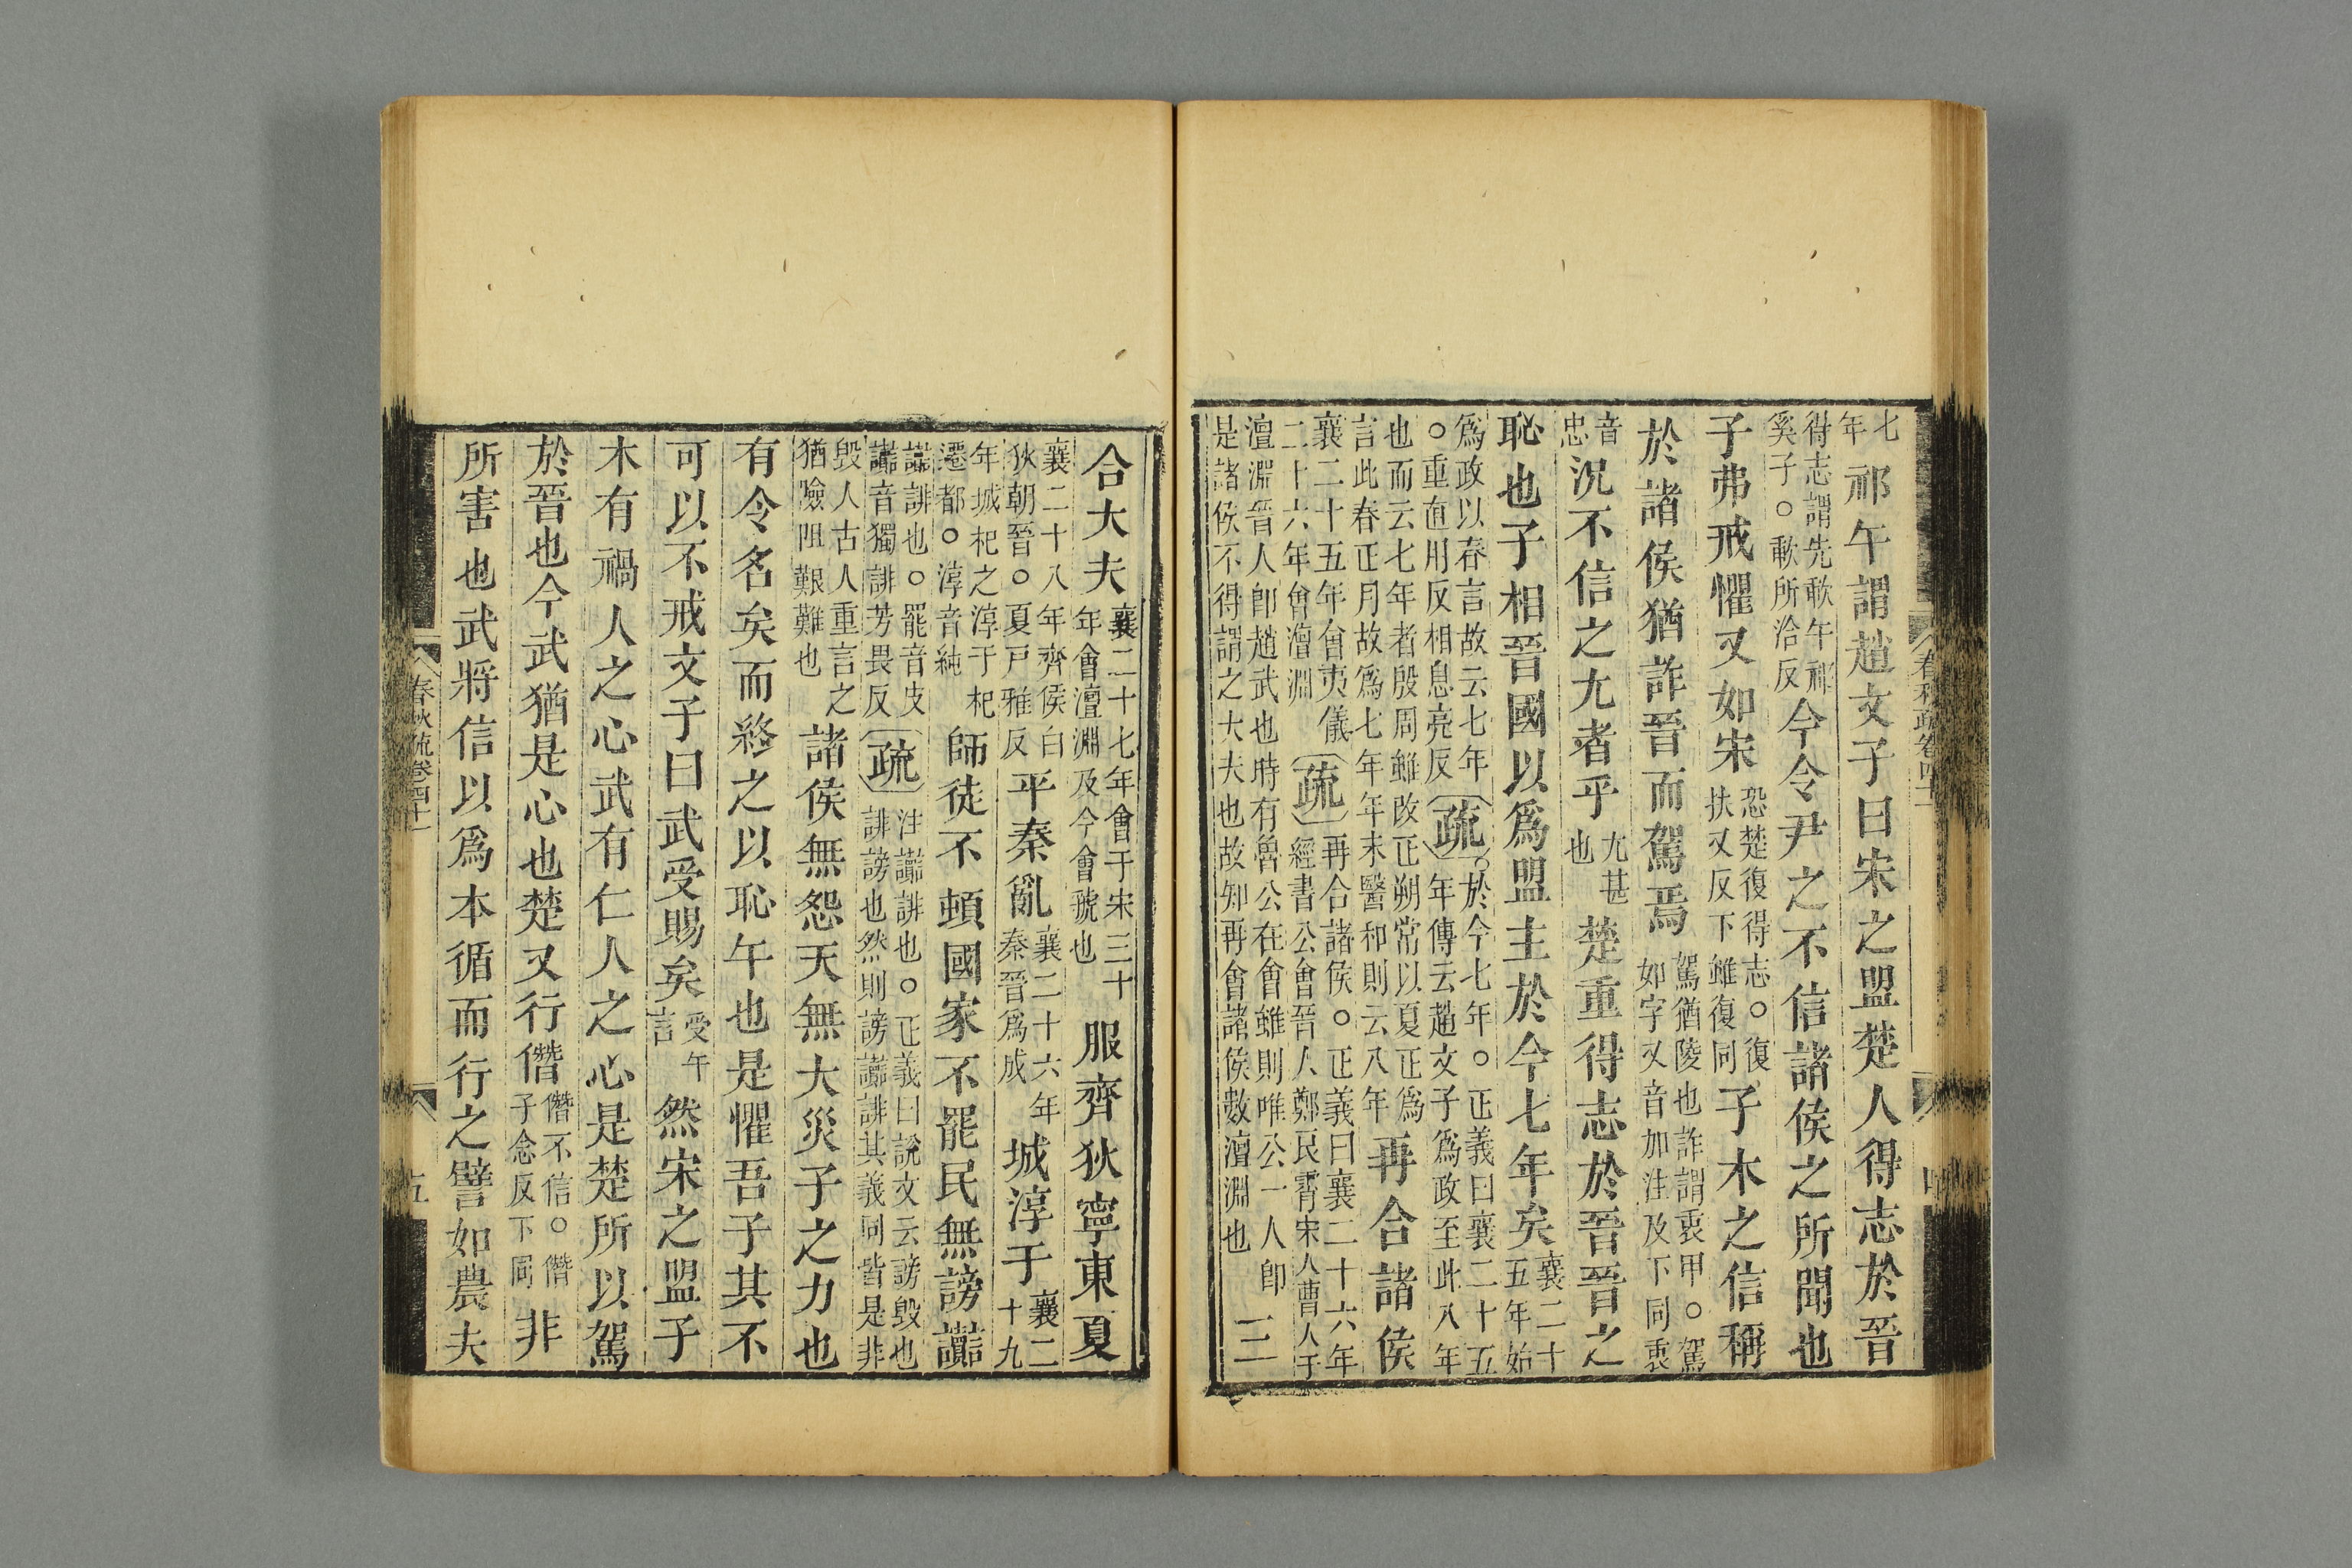 七年祁午謂趙文子曰宋之盟楚人得志於晉
得志謂先歃午祁奚子○歃所洽反今令尹之不信諸侯之所聞也
子弗戒懼又如宋恐楚復得志○復扶又反下雖復同子木之信稱
於諸侯猶詐晉而駕焉駕猶陵也詐謂衷甲○駕如字又音加注及下同衷
音忠況不信之尤者乎尤甚也楚重得志於晉晉之
恥也子相晉國以為盟主於今七年矣襄二十五年始
為政以春言故云七年○重直用反相息亮反疏於今七年○正義曰襄二十五年傳云趙文子為政至此八年
也而云七年者殷周雖改正朔常以夏正為言此春正月故為七年年末醫和則云八年再合諸侯
襄二十五年會夷儀二十六年會澶淵疏再合諸侯○正義曰襄二十六年經書公會晉人鄭良霄宋人曹人于
澶淵晉人卽趙武也時有魯公在會雖則唯公一人卽是諸侯不得謂之大夫也故知再會諸侯數澶淵也三
合大夫襄二十七年會于宋三十年會澶淵及今會虢也服齊狄寧東夏
襄二十八年齊侯白狄朝晉○夏戸雅反平秦亂襄二十六年秦晉為成城淳于襄二十九
年城杞之淳于杞遷都○淳音純師徒不頓國家不罷民無謗讟
讟誹也○罷音皮讟音獨誹芳畏反疏注讟誹也○正義曰說文云謗毀也誹謗也然則謗讟誹其義同皆是非
毀人古人重言之猶險阻艱難也諸侯無怨天無大災子之力也
有令名矣而終之以恥午也是懼吾子其不
可以不戒文子曰武受賜矣受午言然宋之盟子
木有禍人之心武有仁人之心是楚所以駕
於晉也今武猶是心也楚又行僭僭不信○僭子念反下同非
所害也武將信以為本循而行之譬如農夫
春秋疏卷四十一
五